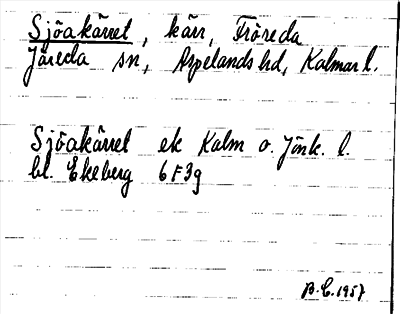 Sjöakärret, kärr, Fröreda
Järeda sn, Aspelands hd, Kalmar l.
Sjöakärret ek Kalm o. Jönk. l.
bl. Ekeberg 6F3g
B.E.1957